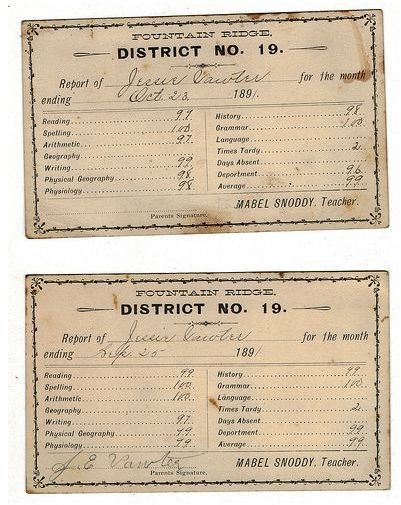 FOUNTAIN RIDGE,
DISTRICT NO. 19.
Report of Jesse Vawter for the month
ending Oct. 23 1891.
Reading 97
Spelling 100
Arithmetic 97
Geography
Writing 99
Physical Geography 98
Physiology 98
History 98
Grammar 100
Language
Times Tardy 2
Days Absent
Department 96
Average 99
MABEL SNODDY, Teacher.
Parents Signature.
FOUNTAIN RIDGE,
DISTRICT NO. 19.
Report of Jesse Vawter for the month
ending Sep. 25 1891
Reading 99
Spelling 100
Arithmetic 100
Geography
Writing 97
Physical Geography 99
Physiology 99
History 99
Grammar 100
Language
Times Tardy 2
Days Absent
Department 99
Average 99
J. E. Vawter
Parents Signature.
MABEL SNODDY, Teacher.